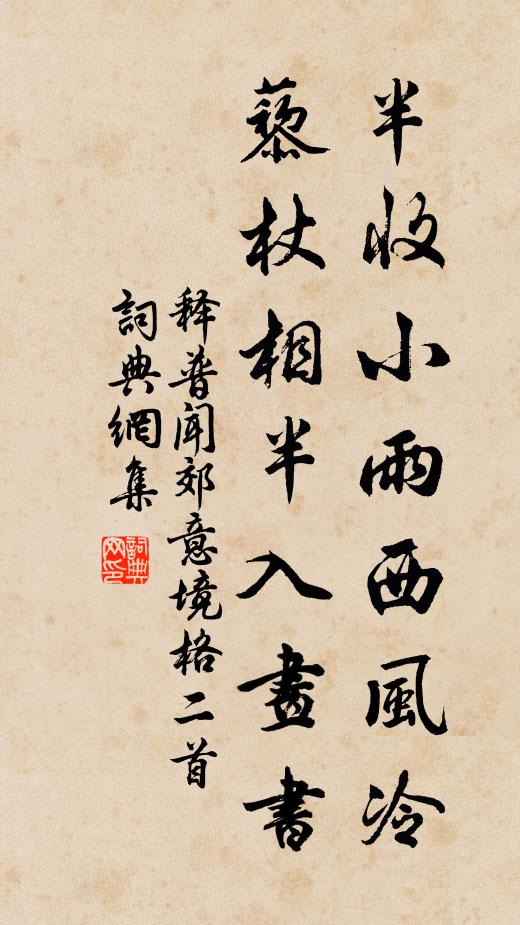 半收小雨西風冷
藜杖相半入畫書
释普聞郊意境格二首
詞典網集
詞典網印